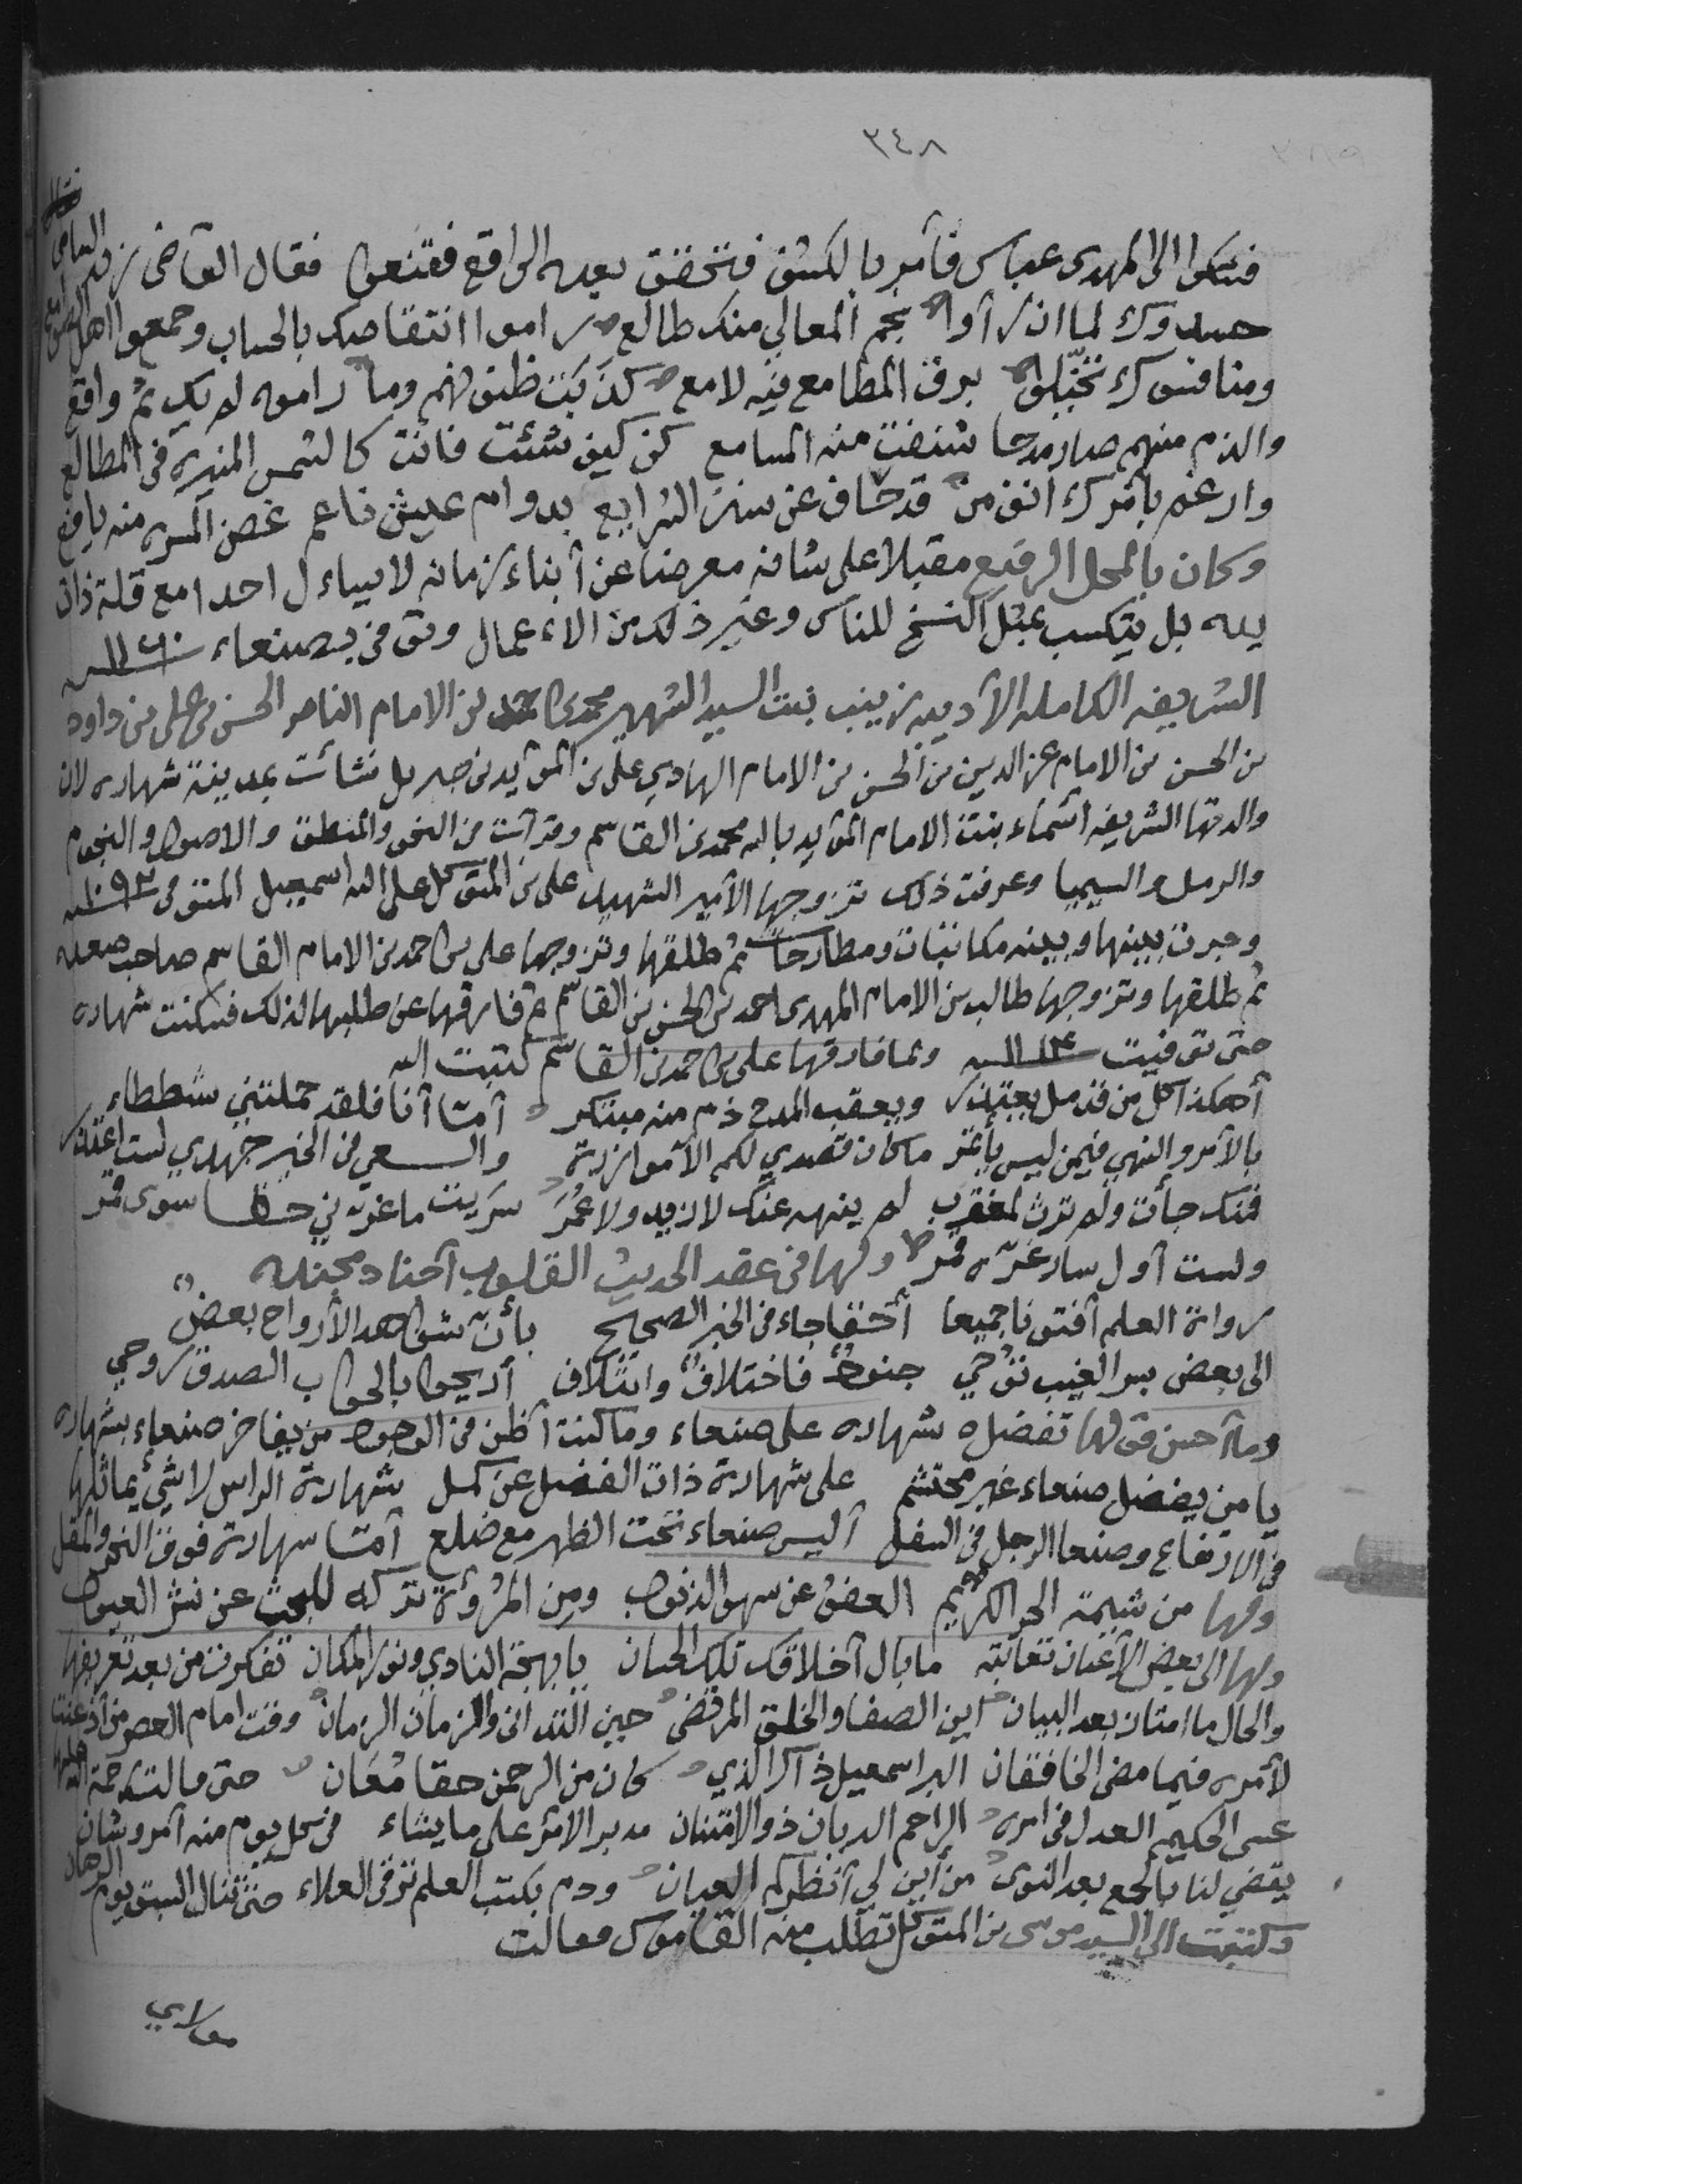 ٣٤٨
فشكوا الى المهدى عباس فأمر بالكشف فتحقق بعده الواقع فقنعوا فقال القاضى
حسدوك لما ان رأوا نجم المعالي منك طالع راموا انتقاصك بالحساب وجمعوا اهل
ومنافسوك تخيلوا برق المطامع فيه لامع كذبت ظنونهم وما راموه لم يك ثم واقع
والذم منهم صار مدحا شنفت منه المسامع كن كيف شئت فانت كالشمس المنيره في المطالع
وارغم بأنوك انف من قد حاف عن سنن الشرايع بدوام عيش ناعم غصن المسره منه يافع
وكان بالمحل الرفيع مقبلا على شانه معرضا عن أبناء زمانه لا يساءل احدا مع قلة ذات
يده بل يتكسب بمثل النسخ للناس وغير ذلك من الاعمال وتوفى بصنعاء
الشريفه الكامله الأديبه زينب بنت السيد الشهير محمد بن الامام الناصر الحسن بن علي بن داود
بن الحسن بن الامام عز الدين بن الحسن بن الامام الهادي علي بن المؤيد بن جبريل نشأت بمدينة شهاره لان
والدتها الشريفه أسماء بنت الامام المؤيد بالله محمد بن القاسم وقرأت في النحو والمنطق والاصول والنجوم
والرمل والسيميا وعرفت ذلك تزوجها الأمير الشهير علي بن المتوكل على الله اسمعيل المتوفى
وجرت بينها وبينه مكاتبات ومطارحات ثم طلقها وتزوجها علي بن احمد بن الامام القاسم صاحب صعده
ثم طلقها وتزوجها طالب بن الامام المهدى احمد بن الحسن بن القاسم ثم فارقها عن طلبها لذلك فسكنت شهاره
حتى توفيت ١١١٤ ولما فارقها علي بن احمد بن القاسم كتبت اليه
أهكذا كل من قد مل يعتذر ويعقب المدح ذم منه مبتكر أمّا أنا فلقد حملتني شططاء
بالأمر والنهي فيمن ليس يأتمر ما كان قصدي لكم الأموازرة والسعي في الخير جهدي لست اعتذر
فمنك جأت ولم ترث لمغترب لم ينهه عنك لا زيد ولا عمر سريت ما غرّني حظا سوى قمر
ولست أول سار غرّه قمر ولها في عقد الحديث القلوب أجناد مجنده
رواة العلم أفتونا جميعا أحقا جاء في الخبر الصحيح بأن شواهد الأرواح بعض
الى بعض بسر الغيب توحي جنود فاختلاف وائتلاف أريحوا بالجواب الصدق روحي
وما أحسن قولها تفضل شهاره على صنعاء وما كنت أظن في الوجود من يفاخر صنعاء بشهاره
يا من يفضل صنعاء غير محتشم على شهارة ذات الفضل عن كمل شهارة الراس لا شيئ يماثلها
في الارتفاع وصنعا الرجل في السفل أليس صنعاء تحت الظهر مع ضلع أمّا شهارة فوق النحر والمقل
ولها من شيمة الحر الكريم الغض عن سهو الذنوب ومن المروءة تركه للبحث عن نشر العيوب
ولها الى بعض الأعيان تعاتبه ما بال أخلاقك تلك الحسان يا بهجة النادي ونور المكان تنكرت من بعد تعريفها
والحال ما امتاز بعد البيان اين الصفا والخلق المرتضى حين التداني والزمان الزمان وقت امام العصر من أذعنت
لأمره فيما مضى الخافقان البر اسمعيل ذاك الذي كان من الرحمن حقا مُعَان حتى مالت رحمة
عسى الحكيم العدل في امره الراحم الديان ذو الامتنان مدبر الأمر على ما يشاء في كل يوم منه أمر وشان
يقضي لنا بالجمع بعد النوى من أين لي أنظركم العيان ودم بكتب العلم ترقى العلاء حتى تنال السبق يوم الرهان
وكتبت الى السيد موسى بن المتوكل تطلب منه القاموس فقالت